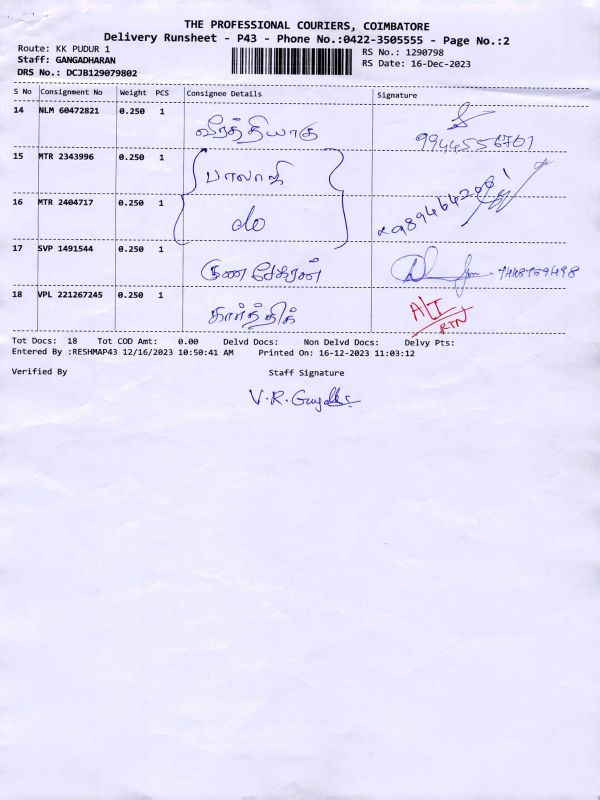 THE PROFESSIONAL COURIERS, COIMBATORE
Delivery Runsheet - P43 - Phone No.:0422-3505555 - Page No.:2
Route: KK PUDUR 1 RS No.: 1290798
Staff: GANGADHARAN RS Date: 16-Dec-2023
DRS No.: DCJB129079802
S No Consignment No Weight PCS Consignee Details Signature
14 NLM 60472821 0.250 1 9944556761
15 MTR 2343996 0.250 1 பாலாஜி
16 MTR 2404717 0.250 1 do
17 SVP 1491544 0.250 1 குணசேகரன்
18 VPL 221267245 0.250 1 கார்த்திக் RTN
Tot Docs: 18 Tot COD Amt: 0.00 Delvd Docs: Non Delvd Docs: Delvy Pts:
Entered By :RESHMAP43 12/16/2023 10:50:41 AM Printed On: 16-12-2023 11:03:12
Verified By Staff Signature
V.R.